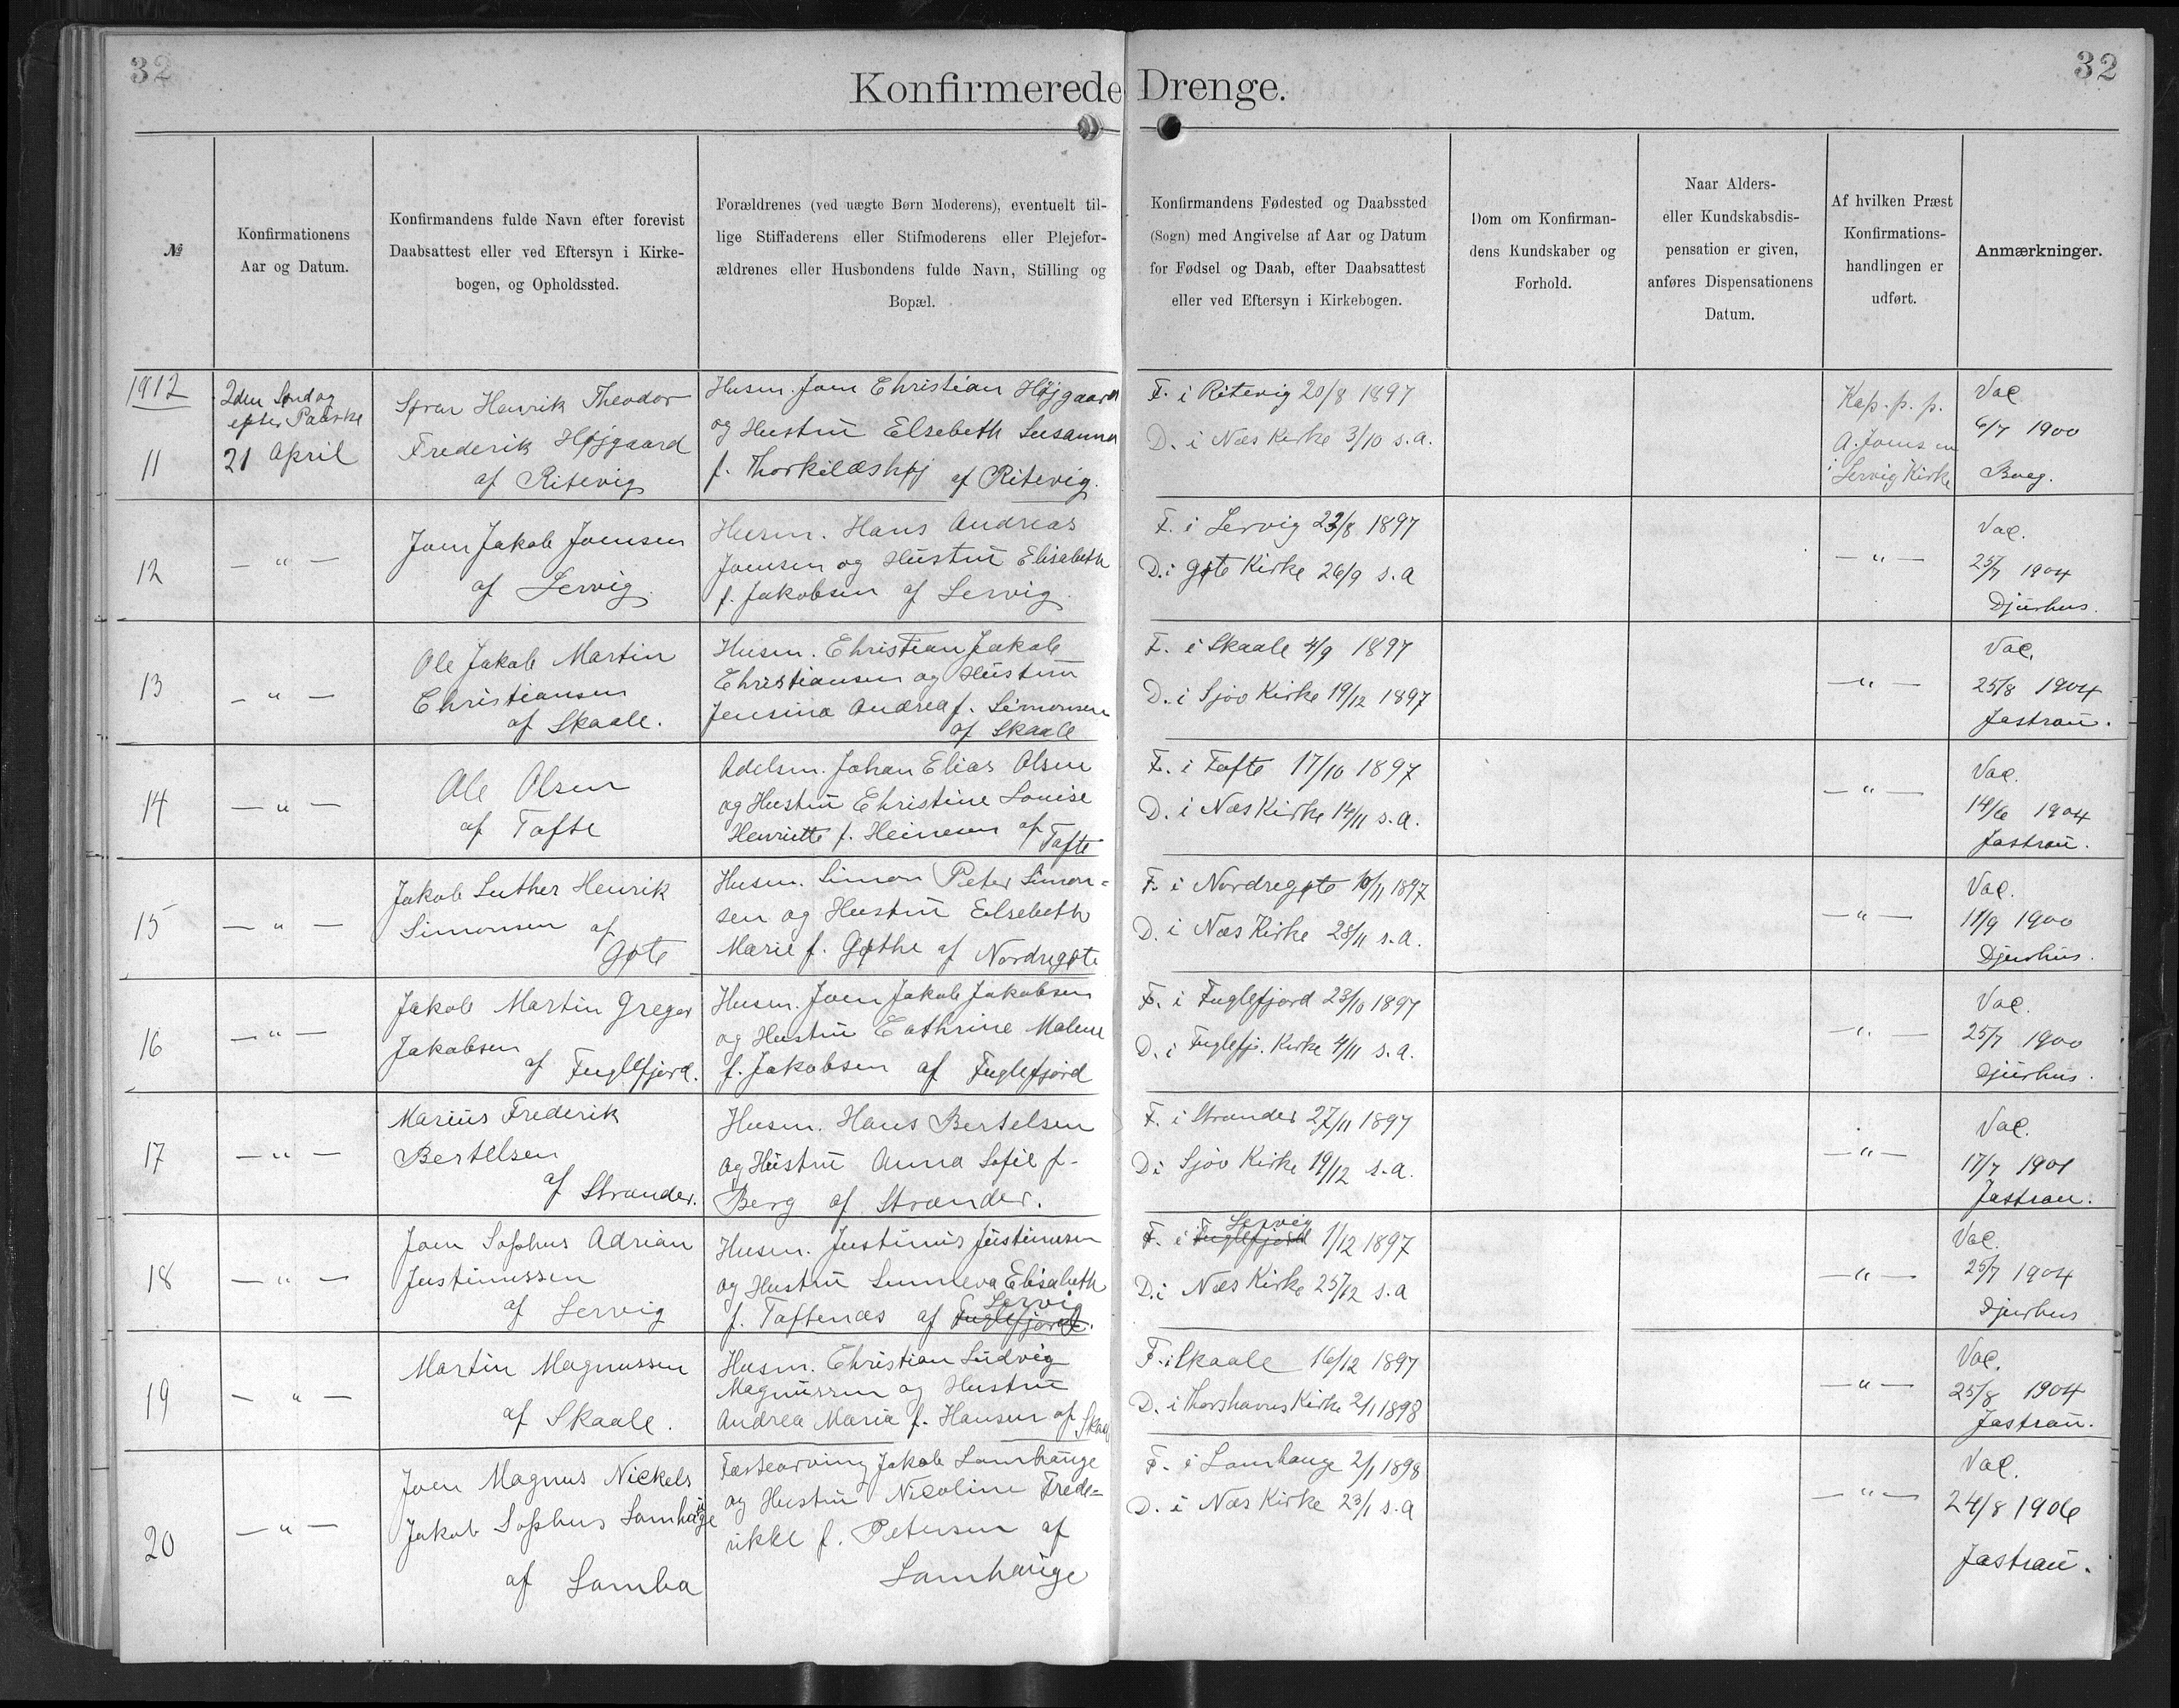 32
32
Konfirmerede Drenge.
№
Konfirmationens
Aar og Datum.
Konfirmandens fulde Navn efter forevist
Daabsattest eller ved Eftersyn i Kirke-
bogen, og Opholdssted.
Forældrenes (ved uægte Børn Moderens), eventuelt til-
lige Stiffaderens eller Stifmoderens eller Plejefor-
ældrenes eller Husbondens fulde Navn, Stilling og
Bopæl.
Konfirmandens Fødested og Daabssted
(Sogn) med Angivelse af Aar og Datum
for Fødsel og Daab, efter Daabsattest
eller ved Eftersyn i Kirkebogen.
Dom om Konfirman-
dens Kundskaber og
Forhold.
Naar Alders-
eller Kundskabsdis-
pensation er given,
anføres Dispensationens
Datum.
Af hvilken Præst
Konfirmations-
handlingen er
udført.
Anmærkninger.
1912
11
2den Søndag
efter Paaske
21 April
Søren Henrik Theodor
Frederik Højgaard
af Ritevig
Husm. Joen Christian Højgaard
og Hustrü Elsebeth Susanna
f. Thorkildshøj af Ritevig.
F. i Ritevig 20/8 1897
D. i Næs Kirke 3/10 s.a.
Kap. p. p.
A. Joensen
i Lervig Kirke
Vac.
6/7 1900
Bueg.
12
— " —
Joen Jakob Joensen
af Lervig
Husm. Hans Andreas
Joensen og Hüstrü Elisabeth
f. Jakobsen af Lervig.
F. i Lervig 22/8 1897
D. i Gøte Kirke 26/9 s.a
— " —
Vac.
25/7 1904
Djürhus.
13
— " —
Ole Jakob Martin
Christiansen
af Skaale.
Husm. Christian Jakob
Christiansen og Hüstrü
Jensina Andrea f. Simonsen
af Skaale
F. i Skaale 4/9 1897
D. i Sjov Kirke 19/12 1897
— " —
Vac.
25/8 1904
Jastraü.
14
— " —
Ole Olsen
af Tofte
Adelsm. Johan Elias Olsen
og Hustrü Christine Louise
Henriette f. Heinesen af
Tofte
F. i Tofte 17/10 1897
D. i Næs Kirke 14/11 s.a.
— " —
Vac.
14/6 1904
Jastraü.
15
— " —
Jakob Luther Henrik
Simonsen af
Gøte
Husm. Simon Peter Simon-
sen og Hustrü Elsebeth
Marie f. Gøthe af Nordregøte
F. i Nordregøte 10/11 1897
D. i Næs Kirke 28/11 s.a.
— " —
Vac.
11/9 1900
Djurhüs.
16
— " —
Jakob Martin Greger
Jakobsen
af Fuglefjord.
Husm. Joen Jakob Jakobsen
og Hustrü Cathrine Malene
f. Jakobsen af Fuglefjord
F. i Fuglefjord 23/10 1897
D. i Fuglefj. Kirke 4/11 s.a.
— " —
Vac.
25/7 1900
Djürhus.
17
— " —
Mariüs Frederik
Bertelsen
af Strænder.
Husm. Hans Bertelsen
og Hüstrü Anna Sofie f.
Berg af Strænder.
F. i Strænder 27/11 1897
D. i Sjov Kirke 19/12 s.a.
— " —
Vac.
17/7 1901
Jastrau.
18
— " —
Joen Sophus Adrian
Justinussen
af Lervig
Husm. Justinus Jüstinusen
og Hustrü Sunneva Elisabeth
Lervig
f. Toftenæs af Fuglefjord.
Lervig
F. i Fuglefjord 1/12 1897
D. i Næs Kirke 25/12 s.a
— " —
Vac.
25/7 1904
Djurhus
19
— " —
Martin Magnussen
af Skaale.
Husm. Christian Ludvig
Magnüssen og Hustrü
Andrea Maria f. Hansen af Skaale
F. i Skaale 16/12 1897
D. i Thorshavns Kirke 2/1 1898
— " —
Vac.
25/8 1904
Jastraü.
20
— " —
Joen Magnus Nickels
Jakob Sophus Lamhaüge
af Lamba
Fæstearving Jakob Lamhaüge
og Hustrü Nicoline Frede-
rikke f. Petersen af
Lamhaüge
F. i Lamhauge 2/1 1898
D. i Næs Kirke 23/1 s.a
— " —
Vac.
24/8 1906
Jastraü.